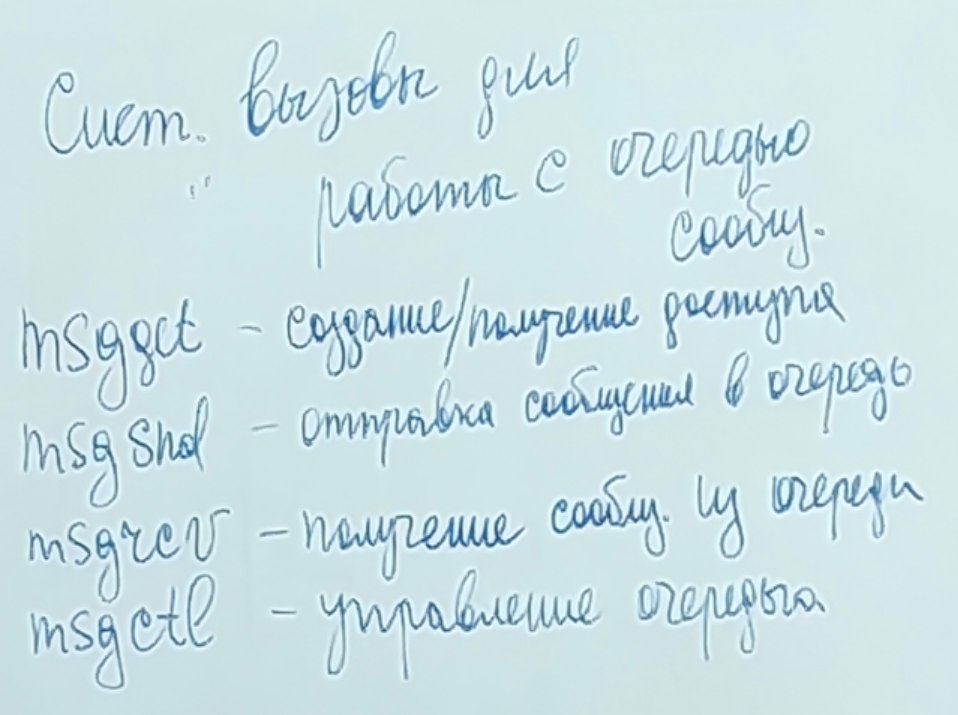 Сист. вызовы для
работы с очередью
сообщ.
msgget - создание/получение доступа
msgsnd - отправка сообщения в очередь
msgrcv - получение сообщ. из очереди
msgctl - управление очередью